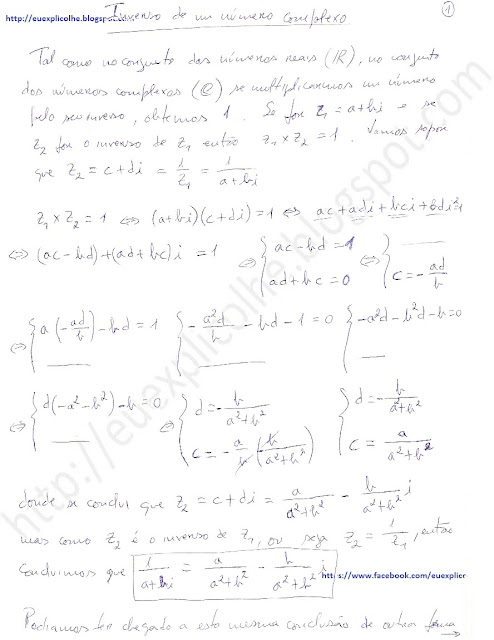 http://euexplicolhe.blogspot.
Inverso de um número complexo
1
Tal como no conjunto dos números reais (IR), no conjunto
dos números complexos (C) se multiplicarmos um número
pelo seu inverso, obtemos 1. Se for z₁ = a+bi e se
z₂ for o inverso de z₁ então z₁ × z₂ = 1. Vamos supor
que z₂ = c+di = 1/z₁ = 1/(a+bi)
z₁ × z₂ = 1 ⇔ (a+bi)(c+di) = 1 ⇔ ac+adi+bci+bdi² = 1
⇔ (ac-bd)+(ad+bc)i = 1 ⇔ { ac-bd = 1 ; ad+bc = 0 ⇔ { ____ ; c = -ad/b
⇔ { a(-ad/b) - bd = 1 ; ____ { -a²d/b - bd - 1 = 0 ; ____ { -a²d - b²d - b = 0 ; ____
⇔ { d(-a²-b²) - b = 0 ; ____ ⇔ { d = -b/(a²+b²) ; c = -a/b (-b/(a²+b²)) { d = -b/(a²+b²) ; c = a/(a²+b²)
donde se conclui que z₂ = c+di = a/(a²+b²) - b/(a²+b²) i
mas como z₂ é o inverso de z₁, ou seja z₂ = 1/z₁, então
concluimos que 1/(a+bi) = a/(a²+b²) - b/(a²+b²) i
https://www.facebook.com/euexplicr
Podíamos ter chegado a esta mesma conclusão de outra forma →
http://euexplicolhe.blogspot.com